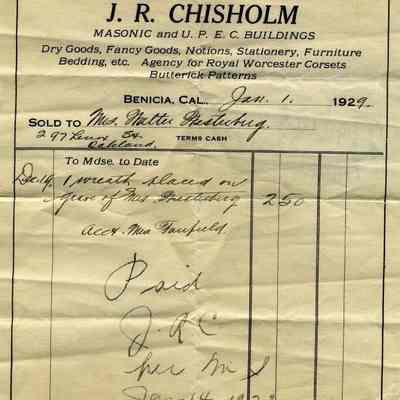 J. R. CHISHOLM
MASONIC and U. P. E. C. BUILDINGS
Dry Goods, Fancy Goods, Notions, Stationery, Furniture
Bedding, etc. Agency for Royal Worcester Corsets
Butterick Patterns
BENICIA, CAL., Jan. 1. 1929
SOLD TO Mrs. Walter
297 Lenox St. TERMS CASH
Oakland.
To Mdse. to Date
Dec. 1 wreath placed on
grave of Mrs 2 50
Acct. Mrs Fairfield
Paid
J. R C
per M S
Jan 14 1929